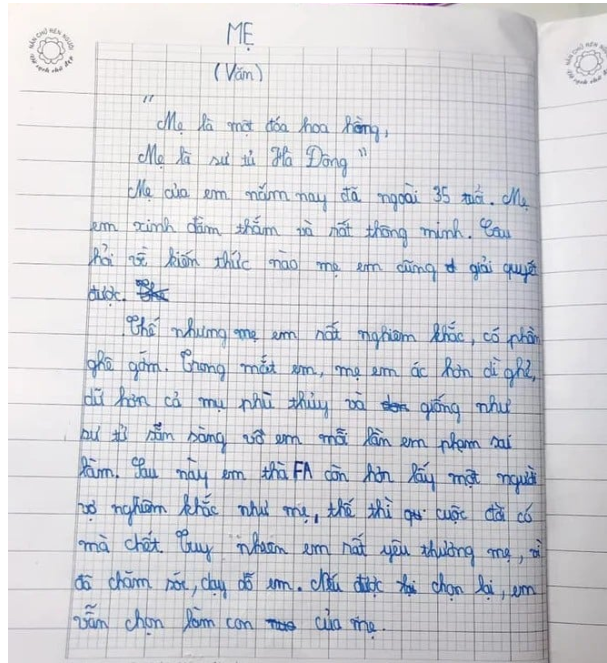 NÂNG CHỮ RÈN NGƯỜI
Vở sạch chữ đẹp
MẸ
(Văn)
"
Mẹ là một đóa hoa hồng,
Mẹ là sư tử Hà Đông"
Mẹ của em năm nay đã ngoài 35 tuổi. Mẹ
em xinh đằm thắm và rất thông minh. Câu
hỏi về kiến thức nào mẹ em cũng giải quyết
được.
Thế nhưng mẹ em rất nghiêm khắc, có phần
ghê gớm. Trong mắt em, mẹ em ác hơn dì ghẻ,
dữ hơn cả mụ phù thủy và giống như
sư tử sẵn sàng vồ em mỗi lần em phạm sai
lầm. Sau này em thà FA còn hơn lấy một người
vợ nghiêm khắc như mẹ, thế thì cuộc đời có
mà chết. Tuy nhiên em rất yêu thương mẹ, vì
đã chăm sóc, dạy dỗ em. Nếu được chọn lại, em
vẫn chọn làm con của mẹ.